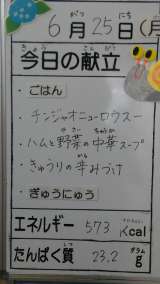 6月25日(月
今日の献立
・ごはん
・チンジャオニューロウスー
・ハムと野菜の中華スープ
・きゅうりの辛みづけ
・ぎゅうにゅう
エネルギー 573 Kcal
たんぱく質 23.2 g